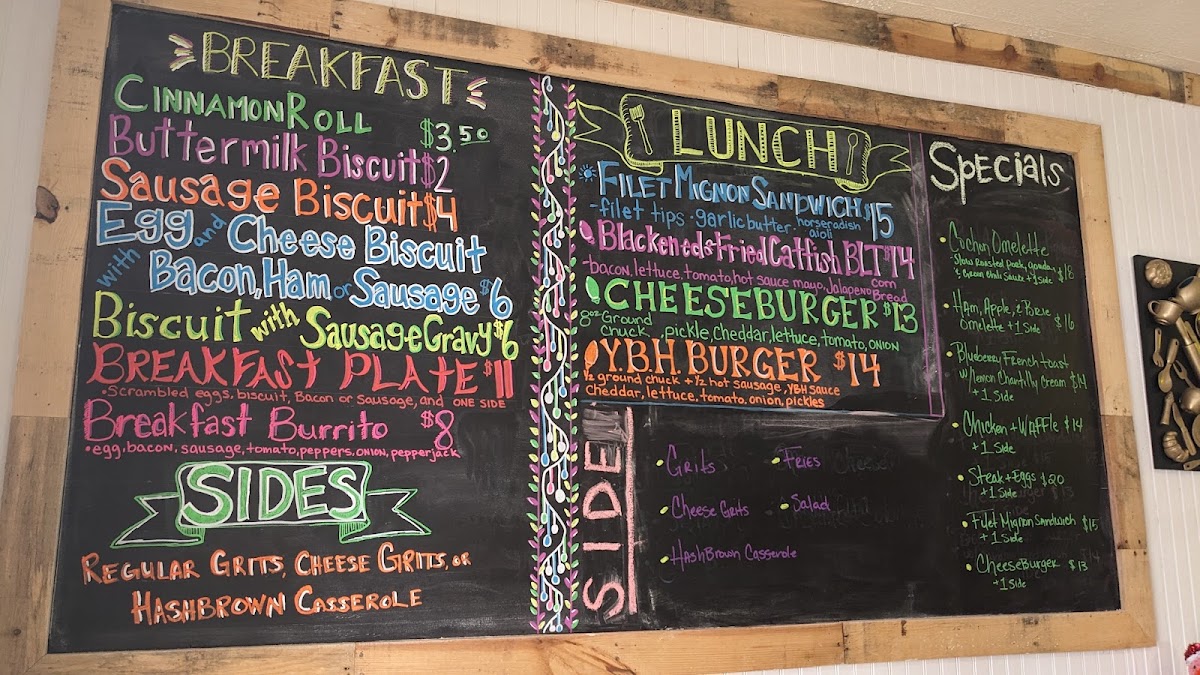 BREAKFAST
CINNAMON ROLL $3.50
Buttermilk Biscuit $2
Sausage Biscuit $4
Egg and Cheese Biscuit
with Bacon, Ham, or Sausage $6
Biscuit with Sausage Gravy $6
BREAKFAST PLATE $11
•Scrambled eggs, biscuit, Bacon or Sausage, and ONE SIDE
Breakfast Burrito $8
•egg, bacon, sausage, tomato, peppers, onion, pepperjack
SIDES
REGULAR GRITS, CHEESE GRITS, OR
HASHBROWN CASSEROLE
LUNCH
FILET MIGNON SANDWICH $15
-filet tips - garlic butter - horseradish
aioli
Blackened or Fried Catfish BLT $14
-bacon, lettuce, tomato, hot sauce mayo, Jalapeno corn
Bread
CHEESEBURGER $13
8oz Ground
chuck, pickle, cheddar, lettuce, tomato, onion
Y.B.H. BURGER $14
1/2 ground chuck + 1/2 hot sausage, YBH sauce
cheddar, lettuce, tomato, onion, pickles
SIDE
• Grits
• Cheese Grits
• HashBrown Casserole
• Fries
• Salad
SPECIALS
• Cochon Omelette
Slow Roasted Pork, gouda, $18
& Green Chili Sauce + 1 Side
• Ham, Apple, & Brie
omelette + 1 Side $16
• Blueberry French toast
w/ lemon Chantilly Cream $14
+ 1 Side
• Chicken + Waffle $14
+ 1 Side
• Steak + Eggs $20
+ 1 Side
• Filet Mignon Sandwich $15
+ 1 Side
• CheeseBurger $13
+ 1 Side